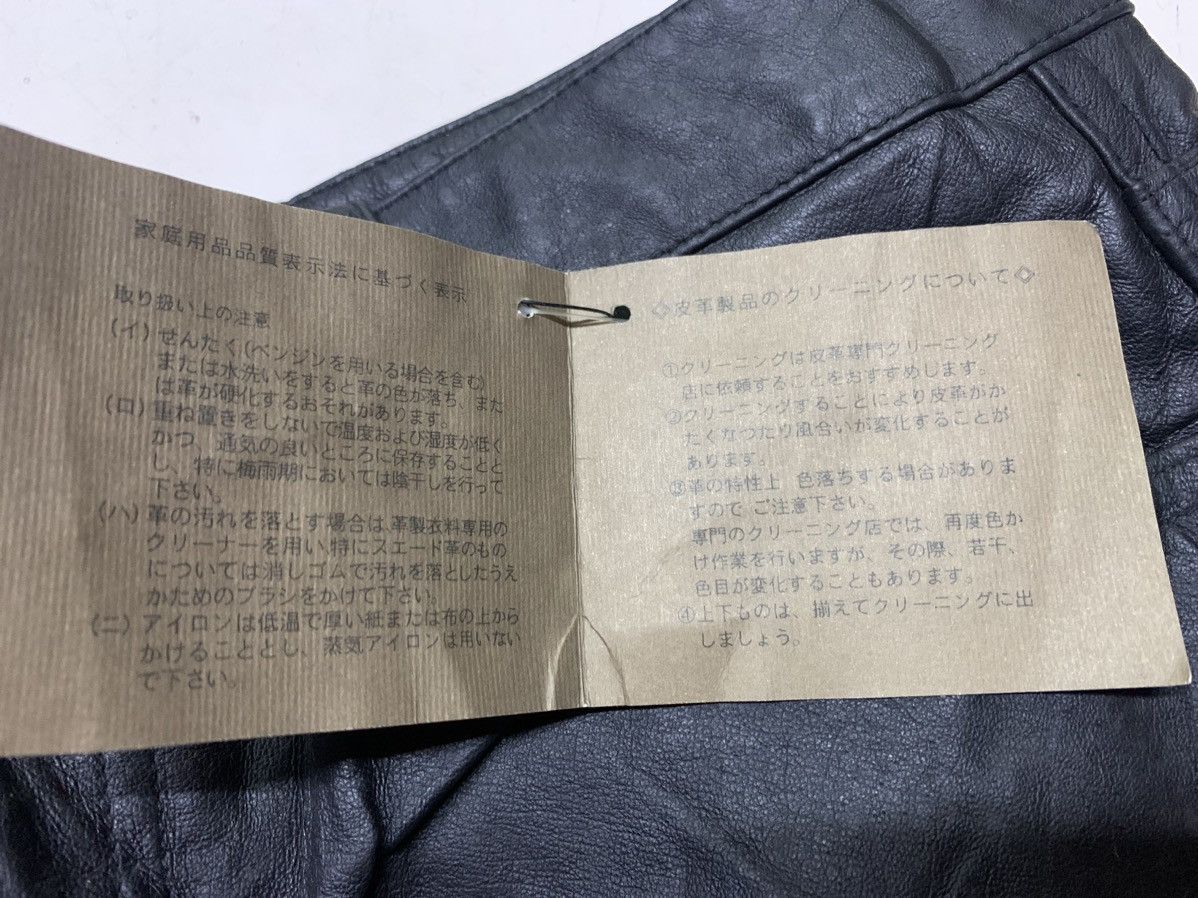 家庭用品品質表示法に基づく表示
取り扱い上の注意
(イ) せんたく(ベンジンを用いる場合を含む)
または水洗いをすると革の色が落ち、また
は革が硬化するおそれがあります。
(ロ) 重ね置きをしないで温度および湿度が低く
かつ、通気の良いところに保存することと
し、特に梅雨期においては陰干しを行って
下さい。
(ハ) 革の汚れを落とす場合は、革製衣料専用の
クリーナーを用い、特にスエード革のもの
については消しゴムで汚れを落としたうえ
かためのブラシをかけて下さい。
(ニ) アイロンは低温で厚い紙または布の上から
かけることとし、蒸気アイロンは用いない
で下さい。
◇皮革製品のクリーニングについて◇
①クリーニングは皮革専門クリーニング
店に依頼することをおすすめします。
②クリーニングすることにより皮革がか
たくなつたり風合いが変化することが
あります。
③革の特性上 色落ちする場合がありま
すので ご注意下さい。
専門のクリーニング店では、再度色か
け作業を行いますが、その際、若干、
色目が変化することもあります。
④上下ものは、揃えてクリーニングに出
しましょう。